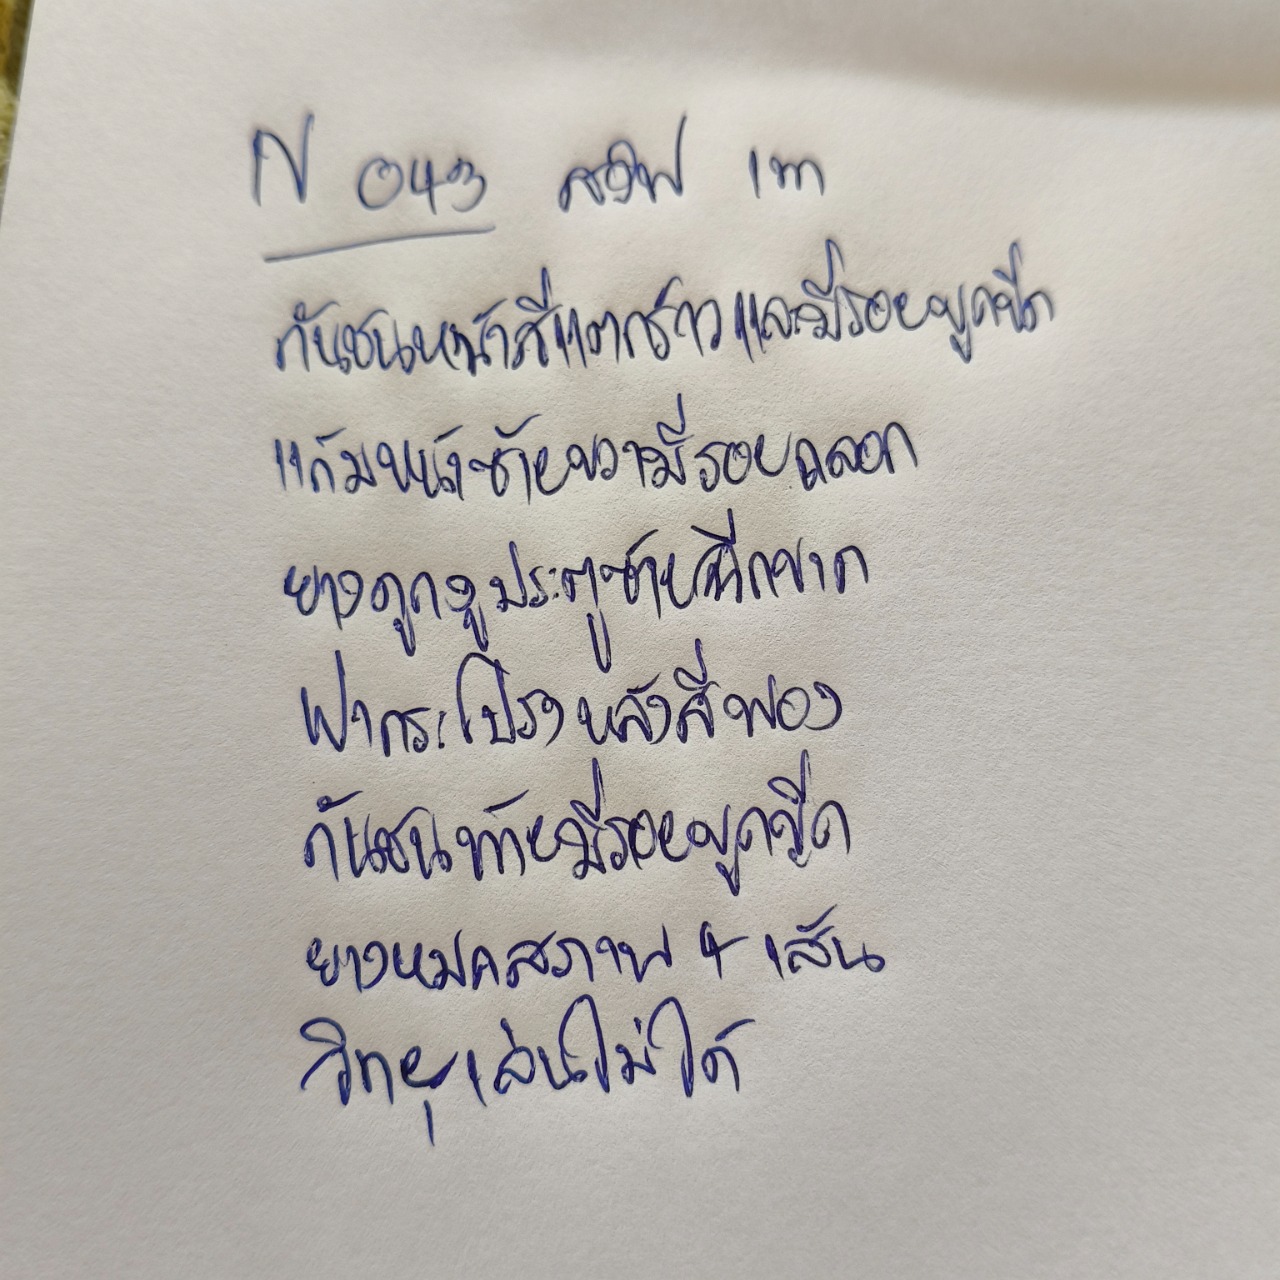 N 043 สวิฟ เทา
กันชนหน้าสีแตกร้าวและมีรอยขูดขีด
แก้มหน้าซ้ายขวามีรอยถลอก
ยางกูดงูประตูซ้ายฉีกขาด
ฝากระโปรงหลังสีพอง
กันชนท้ายมีรอยขูดขีด
ยางหมดสภาพ 4 เส้น
วิทยุเล่นไม่ได้